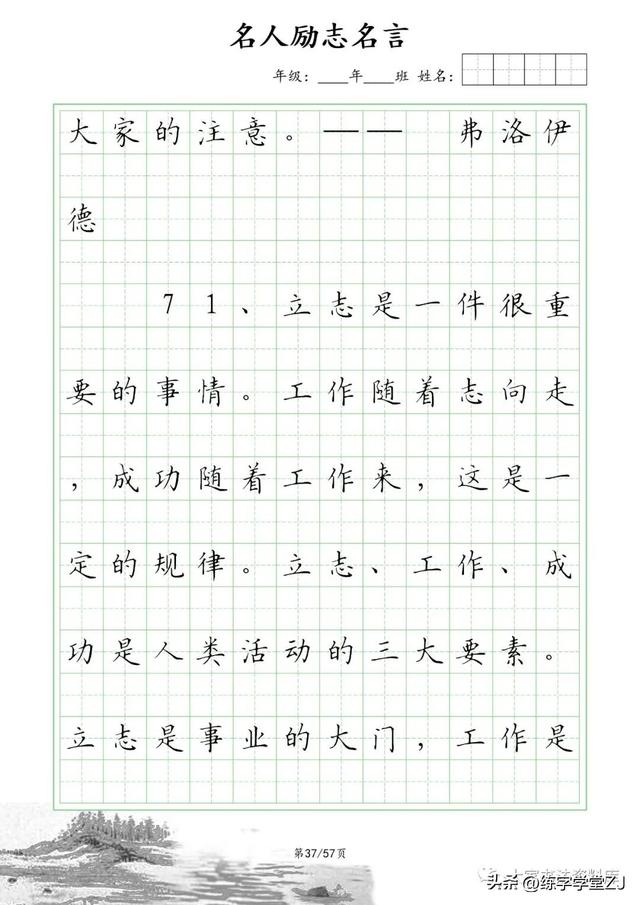 名人励志名言
年级：____年____班 姓名：
大家的注意。—— 弗洛伊
德
71、立志是一件很重
要的事情。工作随着志向走
，成功随着工作来，这是一
定的规律。立志、工作、成
功是人类活动的三大要素。
立志是事业的大门，工作是
第37/57页
头条@练字学堂ZJ